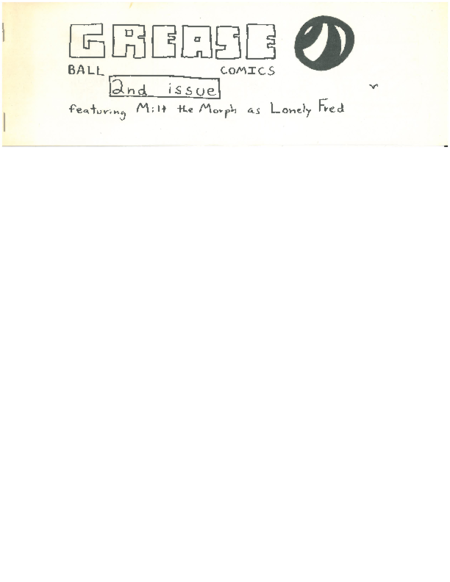 GREASE
BALL COMICS
2nd issue
featuring Milt the Morph as Lonely Fred